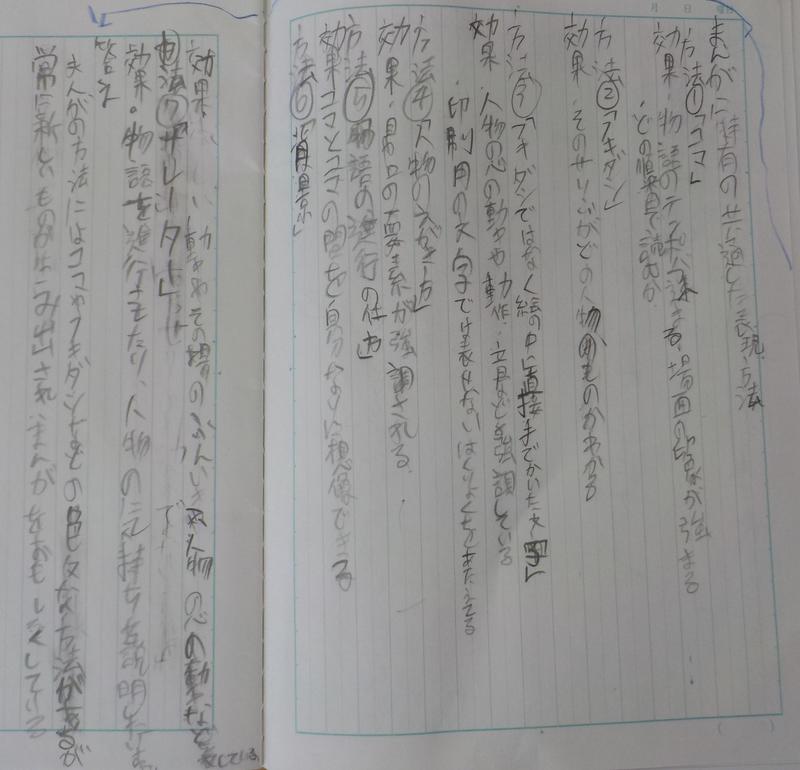 月 日 曜日
まんがに特有の共通した表現方法
方法①「コマ」
効果・物語のテンポが速まる、場面の印象が強まる
・どの順番で読むか
方法②「フキダシ」
効果・そのせりふがどの人物のものかわかる
方法③「フキダシではなく絵の中に直接手でかいた文字」
効果・人物の心の動きや動作・音などを強調している
・印刷用の文字では表せないはくりょくをあたえてる
方法④「人物のえがき方」
効果・鼻口の要素が強調される
方法⑤「物語の進行の仕方」
効果コマとコマの間を自分なりに想像できる
方法⑥「背景」
効果 動きやその場のふんいき、人物の心の動きなど表している
方法⑦「ナレーター」
効果・物語を進行させたり、人物の気持ちを説明したりする
答え
まんがの方法にはコマやフキダシなどの色々な方法があるが
常に新しいものがうみ出され、まんがをおもしろくしている